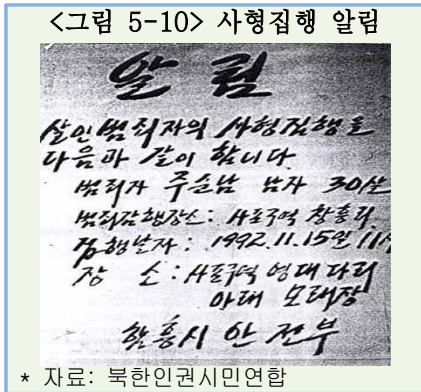 <그림 5-10> 사형집행 알림
알 림
살인범죄자의 사형집행을
다음과 같이 합니다
범죄자 주순남 남자 30살
범죄감행장소: 사포구역 창흥리
집행날자: 1992.11.15일 11시
장 소: 사포구역 영대다리
아래 모래장
함흥시 안전부
* 자료: 북한인권시민연합